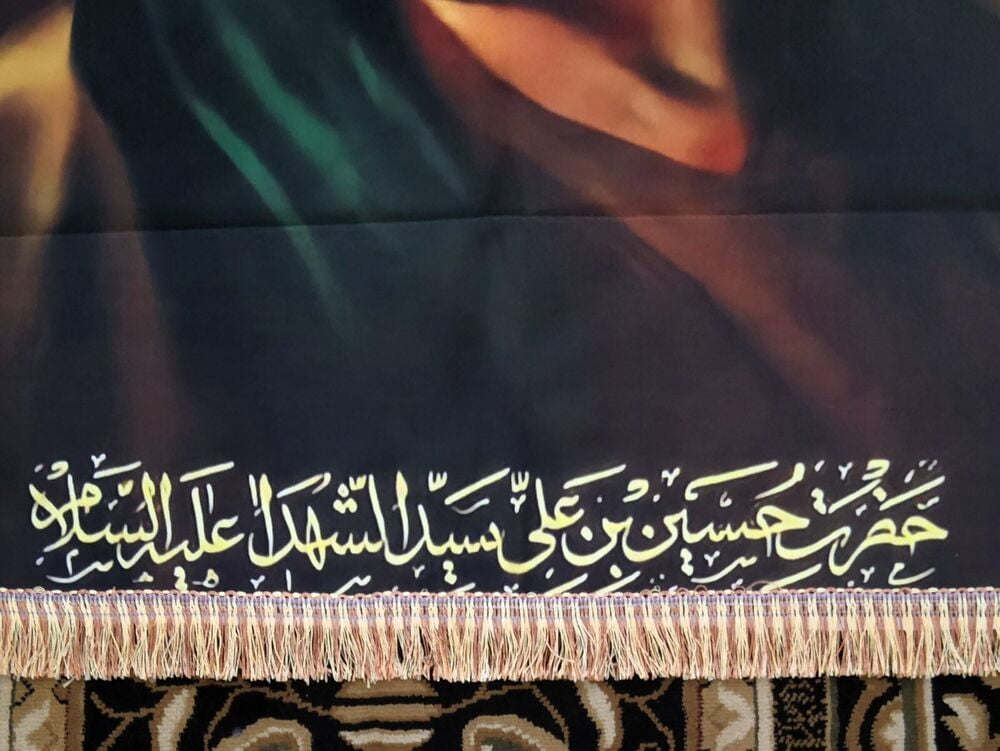 حضرت حسین بن علی سید الشهدا علیه السلام